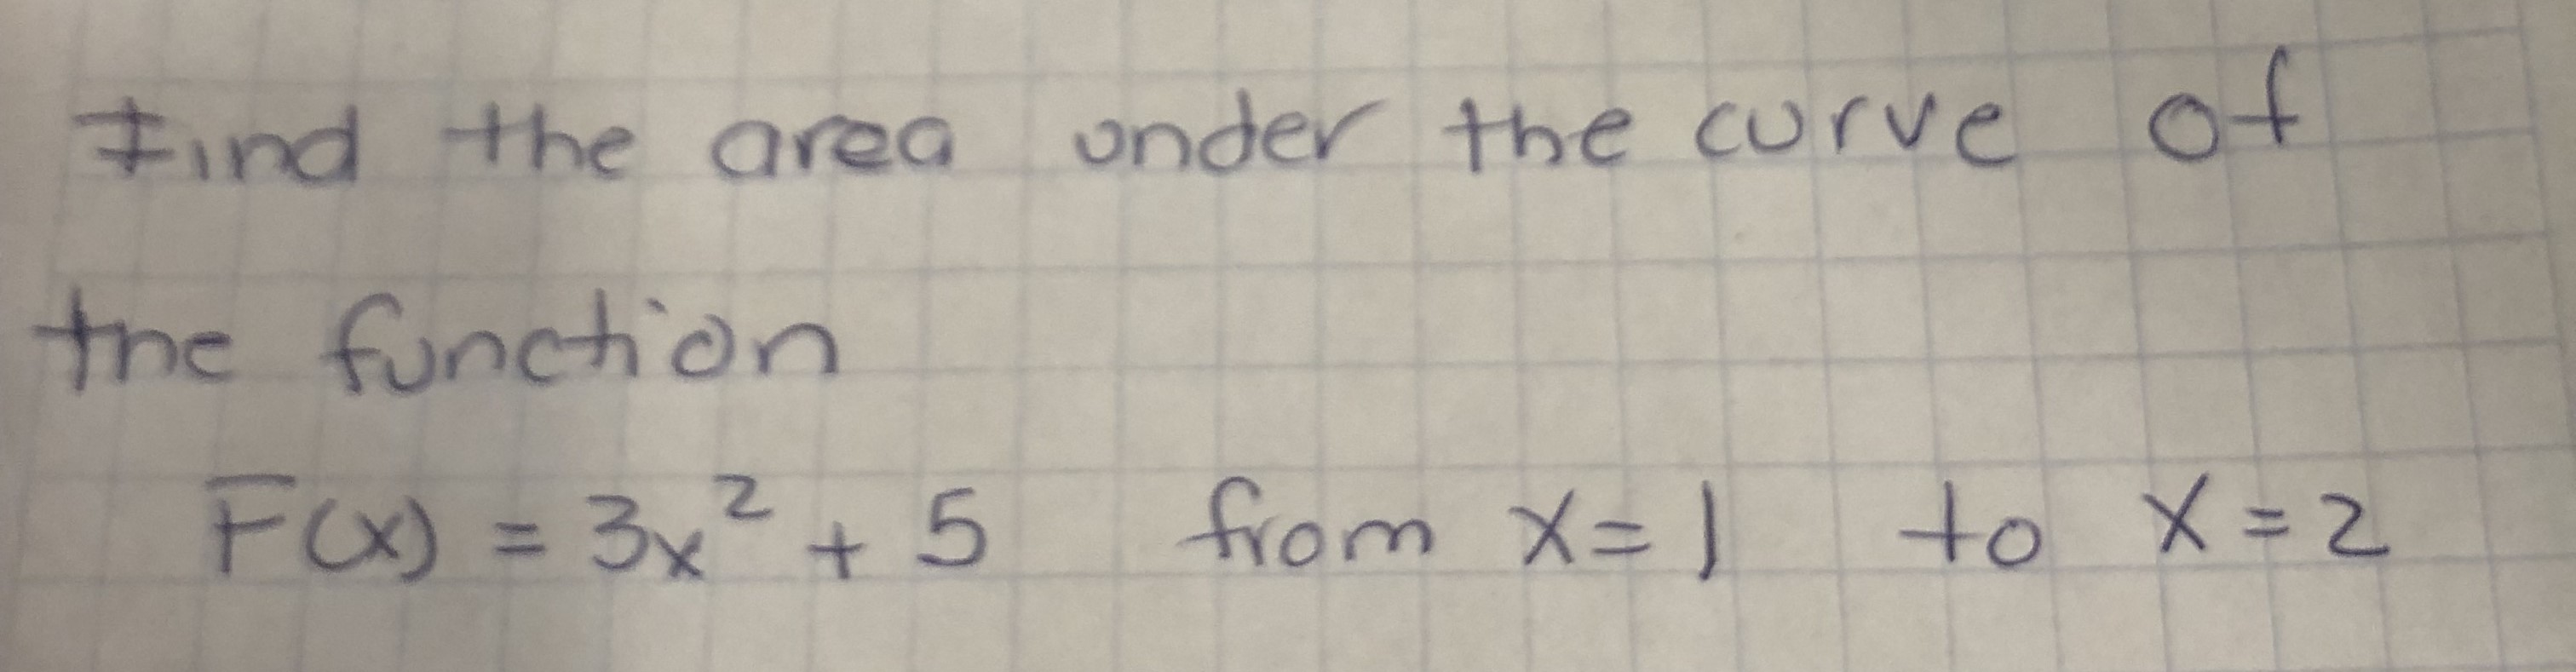 Find the area under the curve of
the function
F(x) = 3x² + 5 from x = 1 to x = 2